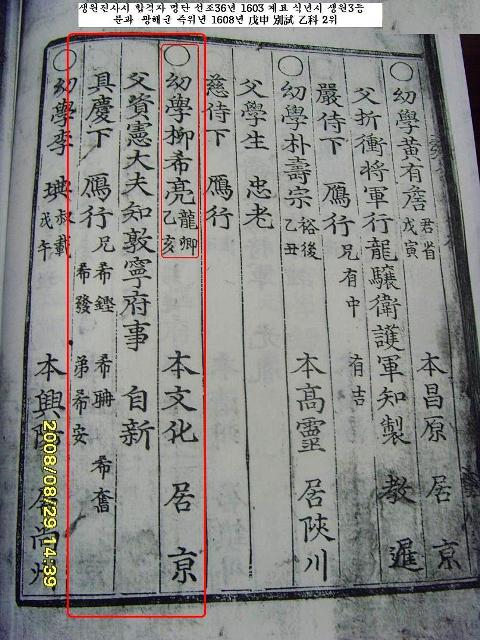 생원진사시 합격자 명단 선조36년 1603 계묘 식년시 생원3등
문과 광해군 즉위년 1608년 戊申 別試 乙科 2위
○幼學黃有詹 君省 戊寅 本昌原 居京
父折衝將軍行龍驤衛護軍知製教 遲
嚴侍下 鴈行 兄有中 有吉
○幼學朴壽宗 裕後 乙丑 本高靈 居陜川
父學生 忠老
慈侍下 鴈行
○幼學柳希亮 龍卿 乙亥 本文化 居京
父資憲大夫知敦寧府事 自新
具慶下 鴈行 兄希鏗 希聃 希奮 希發 弟希安
○幼學李㙉 叔載 戊午 本興陽 居尚州
2008/08/29 14:39